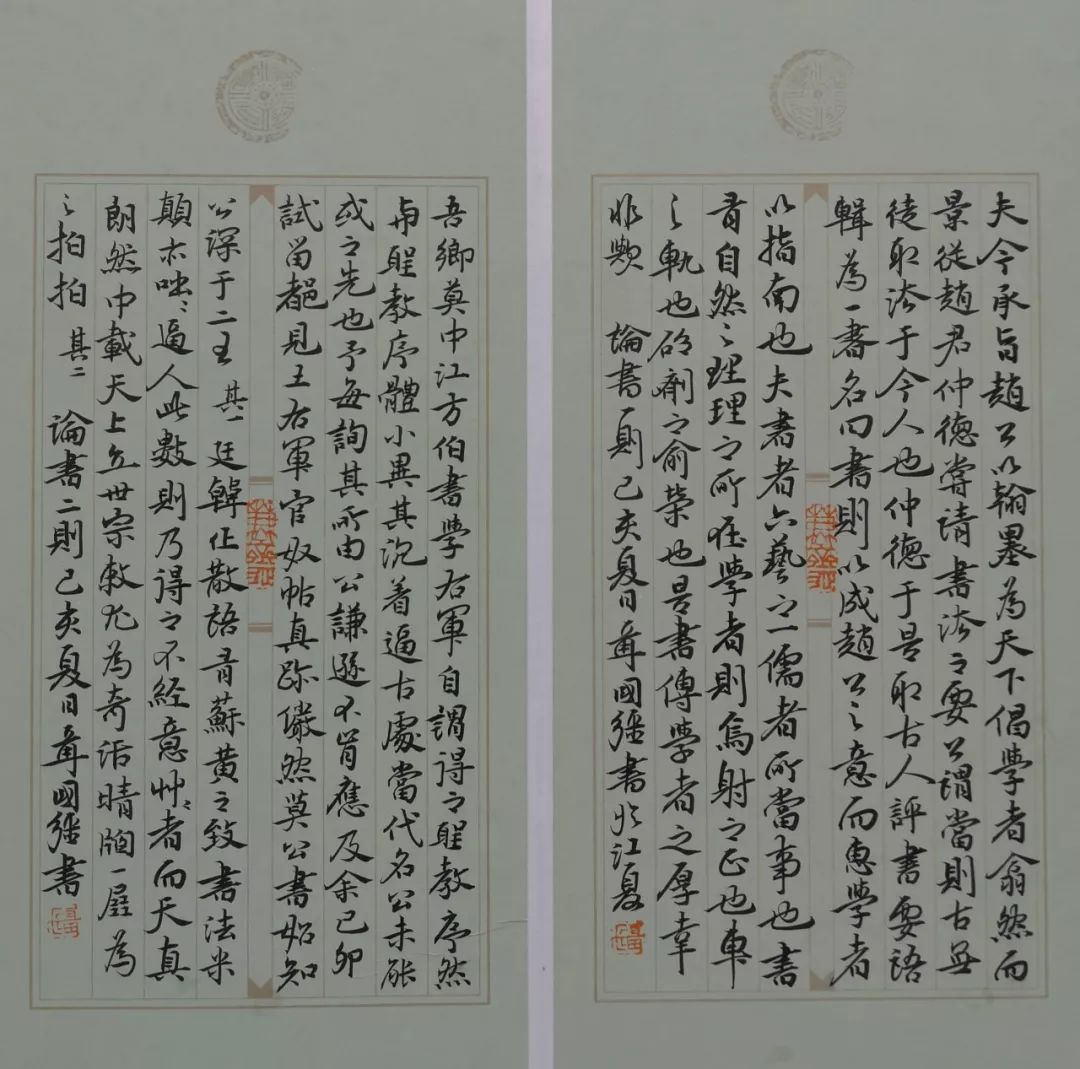 夫今承旨趙公以翰墨為天下倡學者翕然而
景從趙君仲德嘗請書法之要公謂當則古無
徒取法于今人也仲德于是取古人評書要語
輯為一書名曰書則以成趙公之意而惠學者
以指南也夫書者六藝之一儒者所當事也書
有自然之理理之所在學者則焉射之正也車
之軌也砭劑之俞榮也是書傳學者之厚幸
非歟 論書一則己亥夏日 國強書於江夏
吾鄉莫中江方伯書學右軍自謂得之聖教序然
與聖教序體小異其沉着逼古處當代名公未能
或之先也予每詢其所由公謙遜不肯應及余己卯
試留都見王右軍官奴帖真跡儼然莫公書始知
公深于二王 其一 廷韓作散語有蘇黃之致書法米
顛亦咄咄逼人此數則乃得之不經意草草者而天真
朗然中載天上五世宗敕尤為奇活晴牕一展為
之拍拍 其二 論書二則己亥夏日 國強書